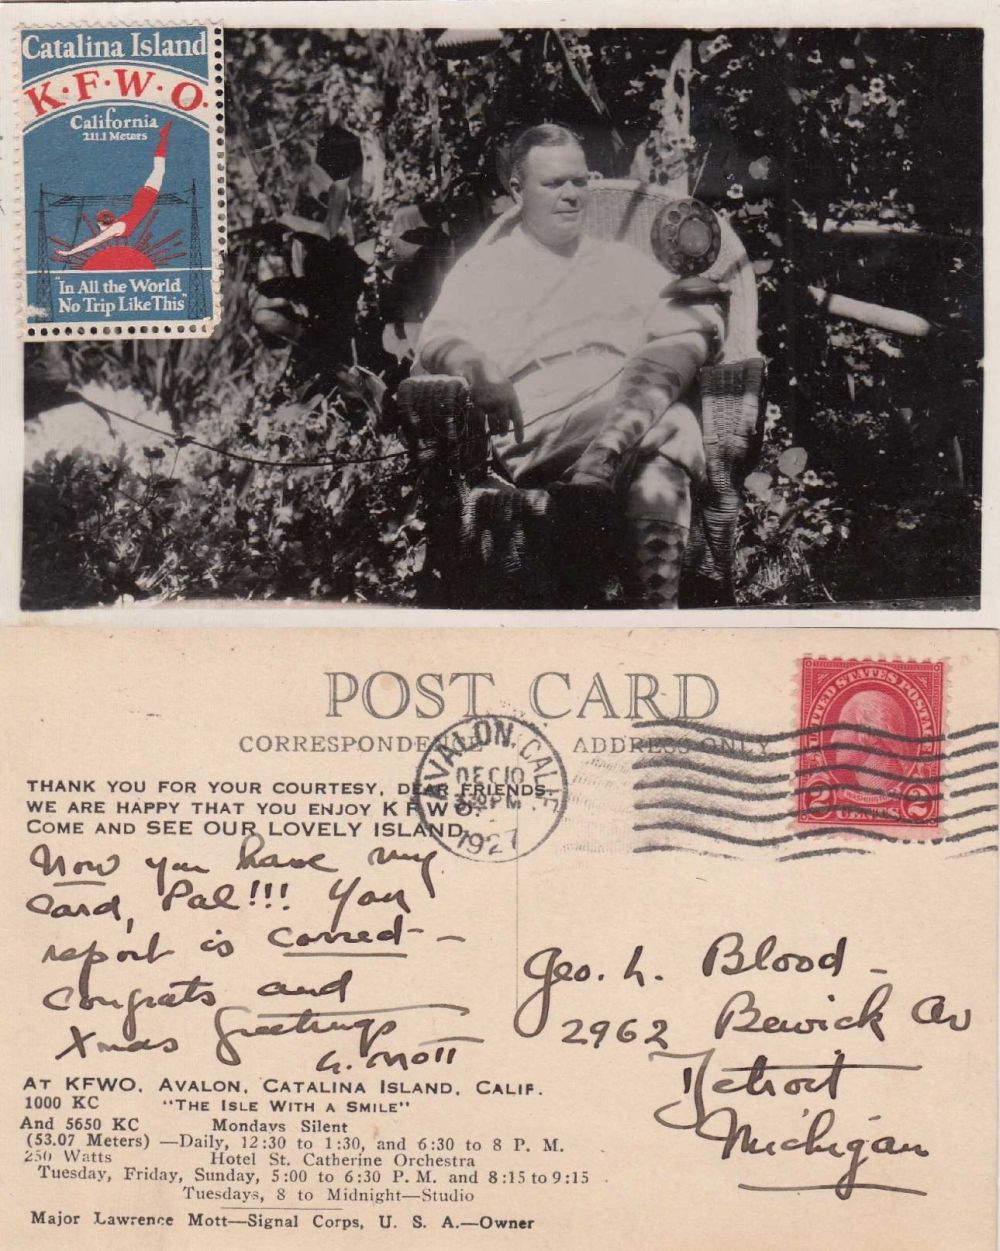 Catalina Island
K·F·W·O·
California
211.1 Meters
"In All the World
No Trip Like This"
POST CARD
CORRESPONDENCE ADDRESS ONLY
AVALON, CALIF.
DEC 10
PM
1927
UNITED STATES POSTAGE
WASHINGTON
2 CENTS 2
THANK YOU FOR YOUR COURTESY, DEAR FRIENDS.
WE ARE HAPPY THAT YOU ENJOY K F W O.
COME AND SEE OUR LOVELY ISLAND.
Now you have my
card, Pal!!! Your
report is correct -
Congrats and
Xmas Greetings
L. Mott
Geo. L. Blood -
2962 Bewick Av
Detroit
Michigan
AT KFWO, AVALON, CATALINA ISLAND, CALIF.
1000 KC "THE ISLE WITH A SMILE"
And 5650 KC Mondays Silent
(53.07 Meters) —Daily, 12:30 to 1:30, and 6:30 to 8 P. M.
250 Watts Hotel St. Catherine Orchestra
Tuesday, Friday, Sunday, 5:00 to 6:30 P. M. and 8:15 to 9:15
Tuesdays, 8 to Midnight—Studio
Major Lawrence Mott—Signal Corps, U. S. A.—Owner